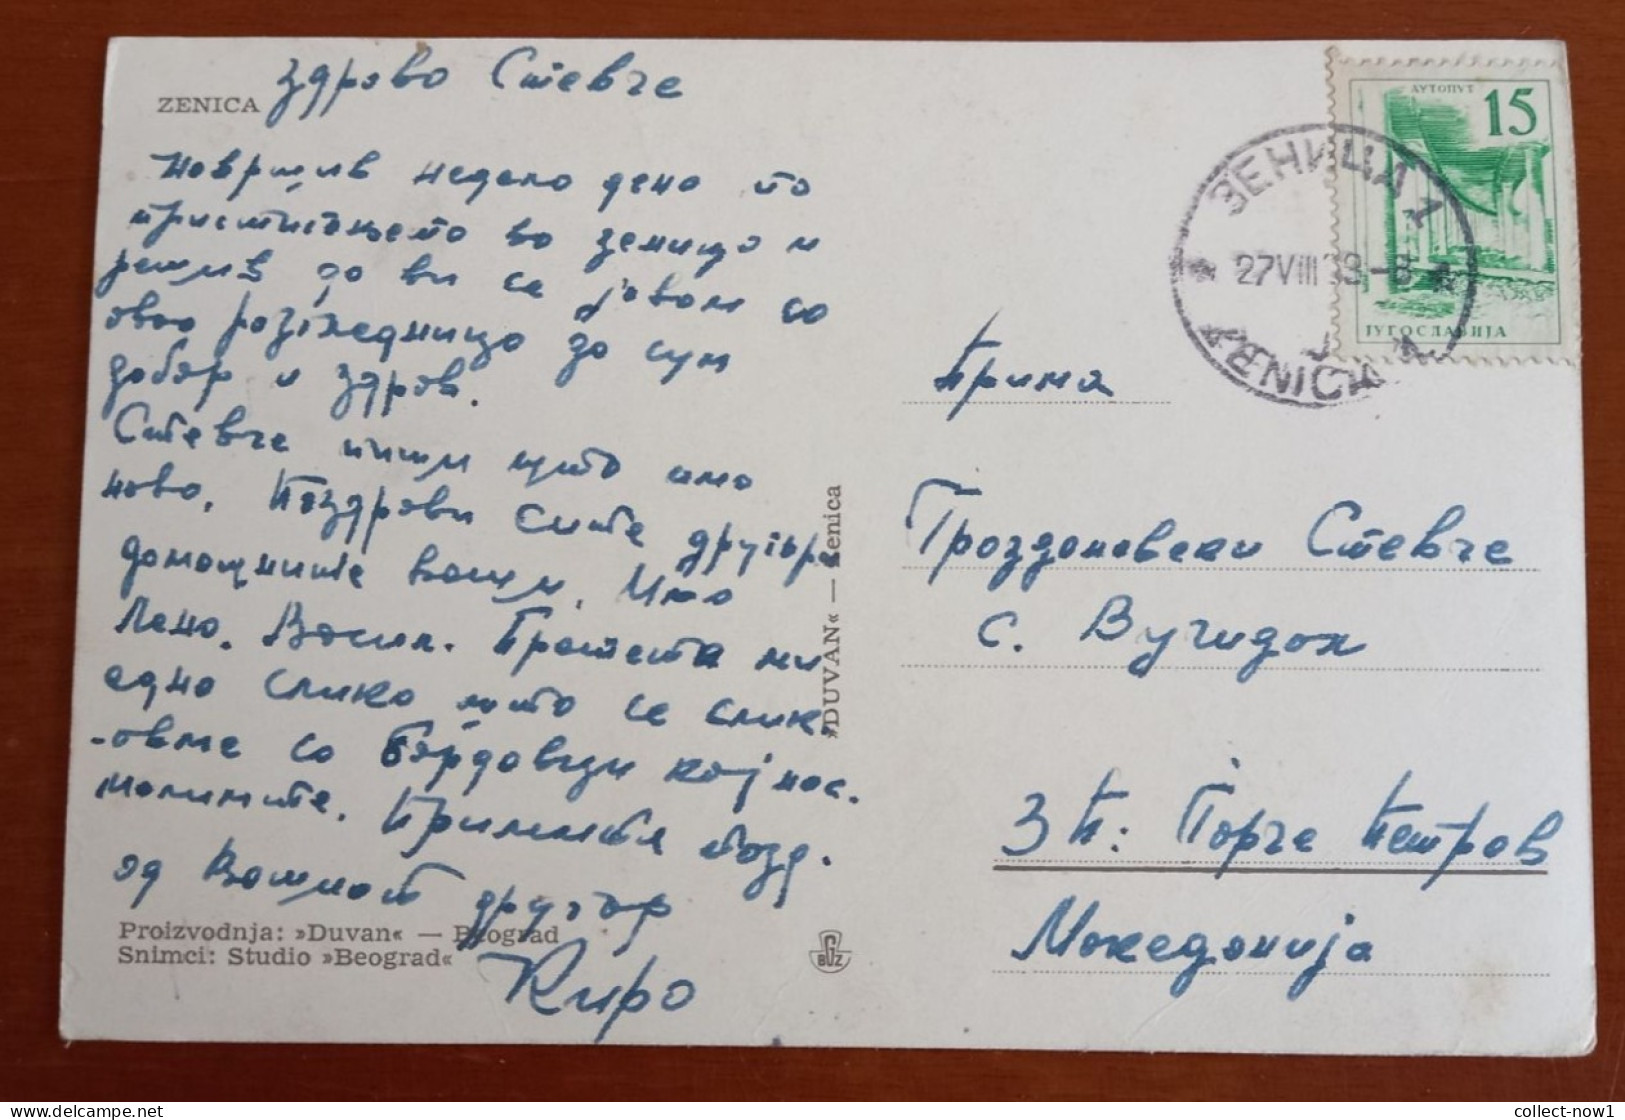 ZENICA
Здраво Стевче
Навршив недела дена по
пристигањето во Зеница и
решив да ви се јавам со
оваа разгледница да сум
добар и здрав.
Стевче пиши што има
ново. Поздрави сите другари
домашните ваши.
Лена. Васил. Пратете ни
една слика што се слик
-авме со Бардовци кај нас.
молимте. Примите позд.
од вашиот другар
Киро
Proizvodnja: »Duvan« — Beograd
Snimci: Studio »Beograd«
»DUVAN« — Zenica
BGZ
АУТОПУТ
15
ЈУГОСЛАВИЈА
ЗЕНИЦА 1
27 VIII -8
ZENICA 1
Прима
Гроздановски Стевче
с. Вучидол
ЗП: Ѓорче Петров
Македонија
collect-now1